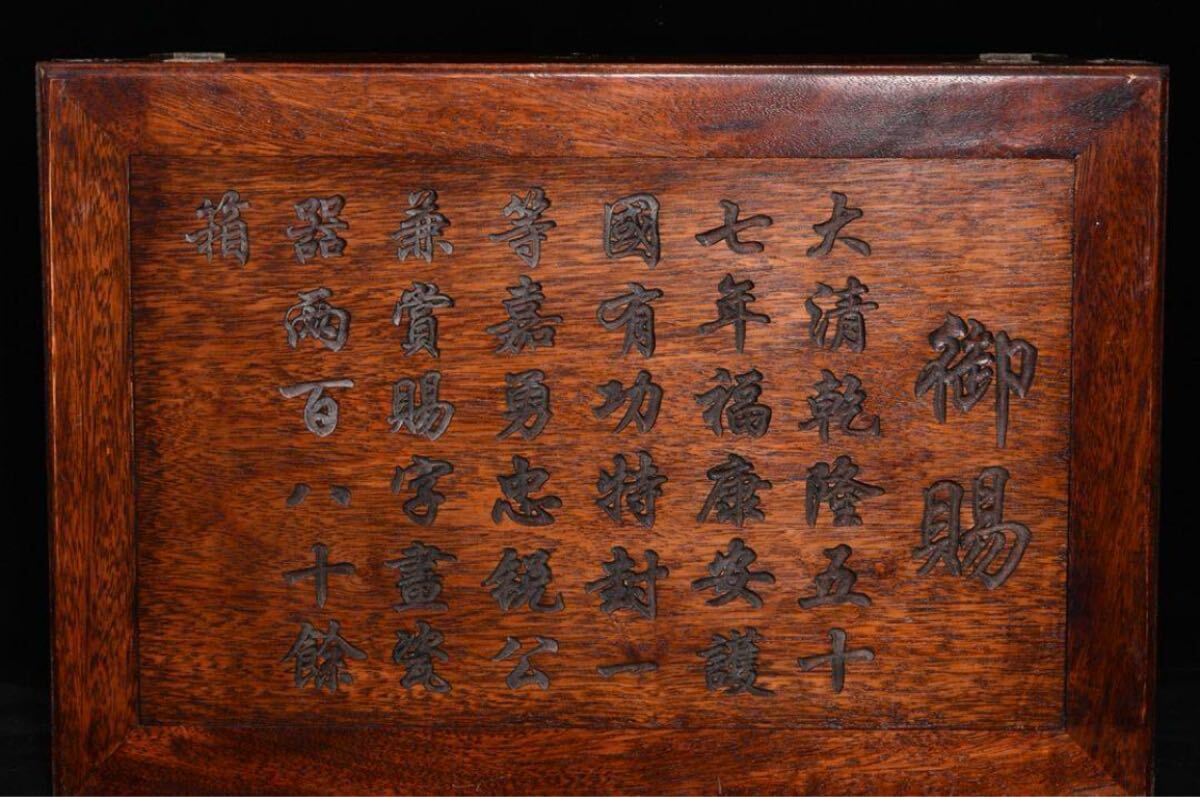 御賜
大清乾隆五十
七年福康安護
國有功特封一
等嘉勇忠銳公
兼賞賜字畫瓷
器兩百八十餘
箱